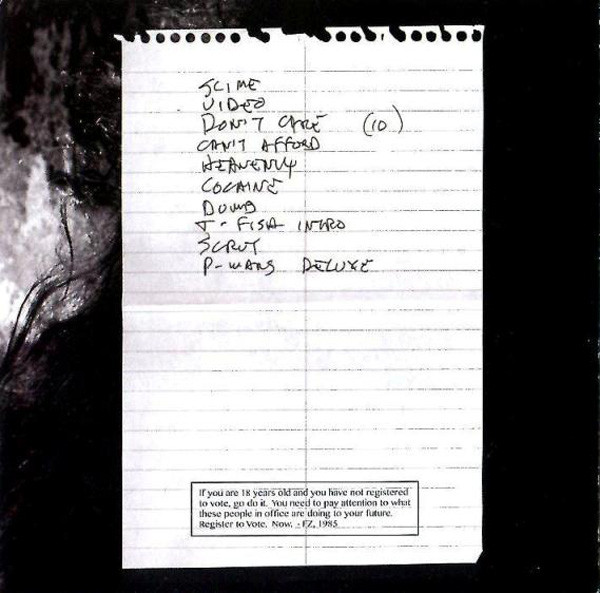 SLIME
VIDEO
DON'T CARE (10)
CAN'T AFFORD
HEAVENLY
COCAINE
DUMB
T-FISH INTRO
SCRUT
P-WANG DELUXE
If you are 18 years old and you have not registered
to vote, go do it. You need to pay attention to what
these people in office are doing to your future.
Register to Vote. Now. - FZ, 1985